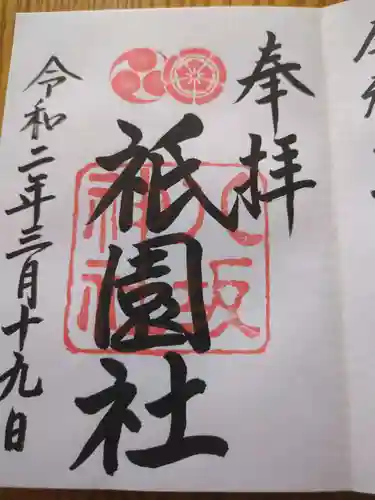 奉拝
祇園社
八坂神社
令和二年三月十九日